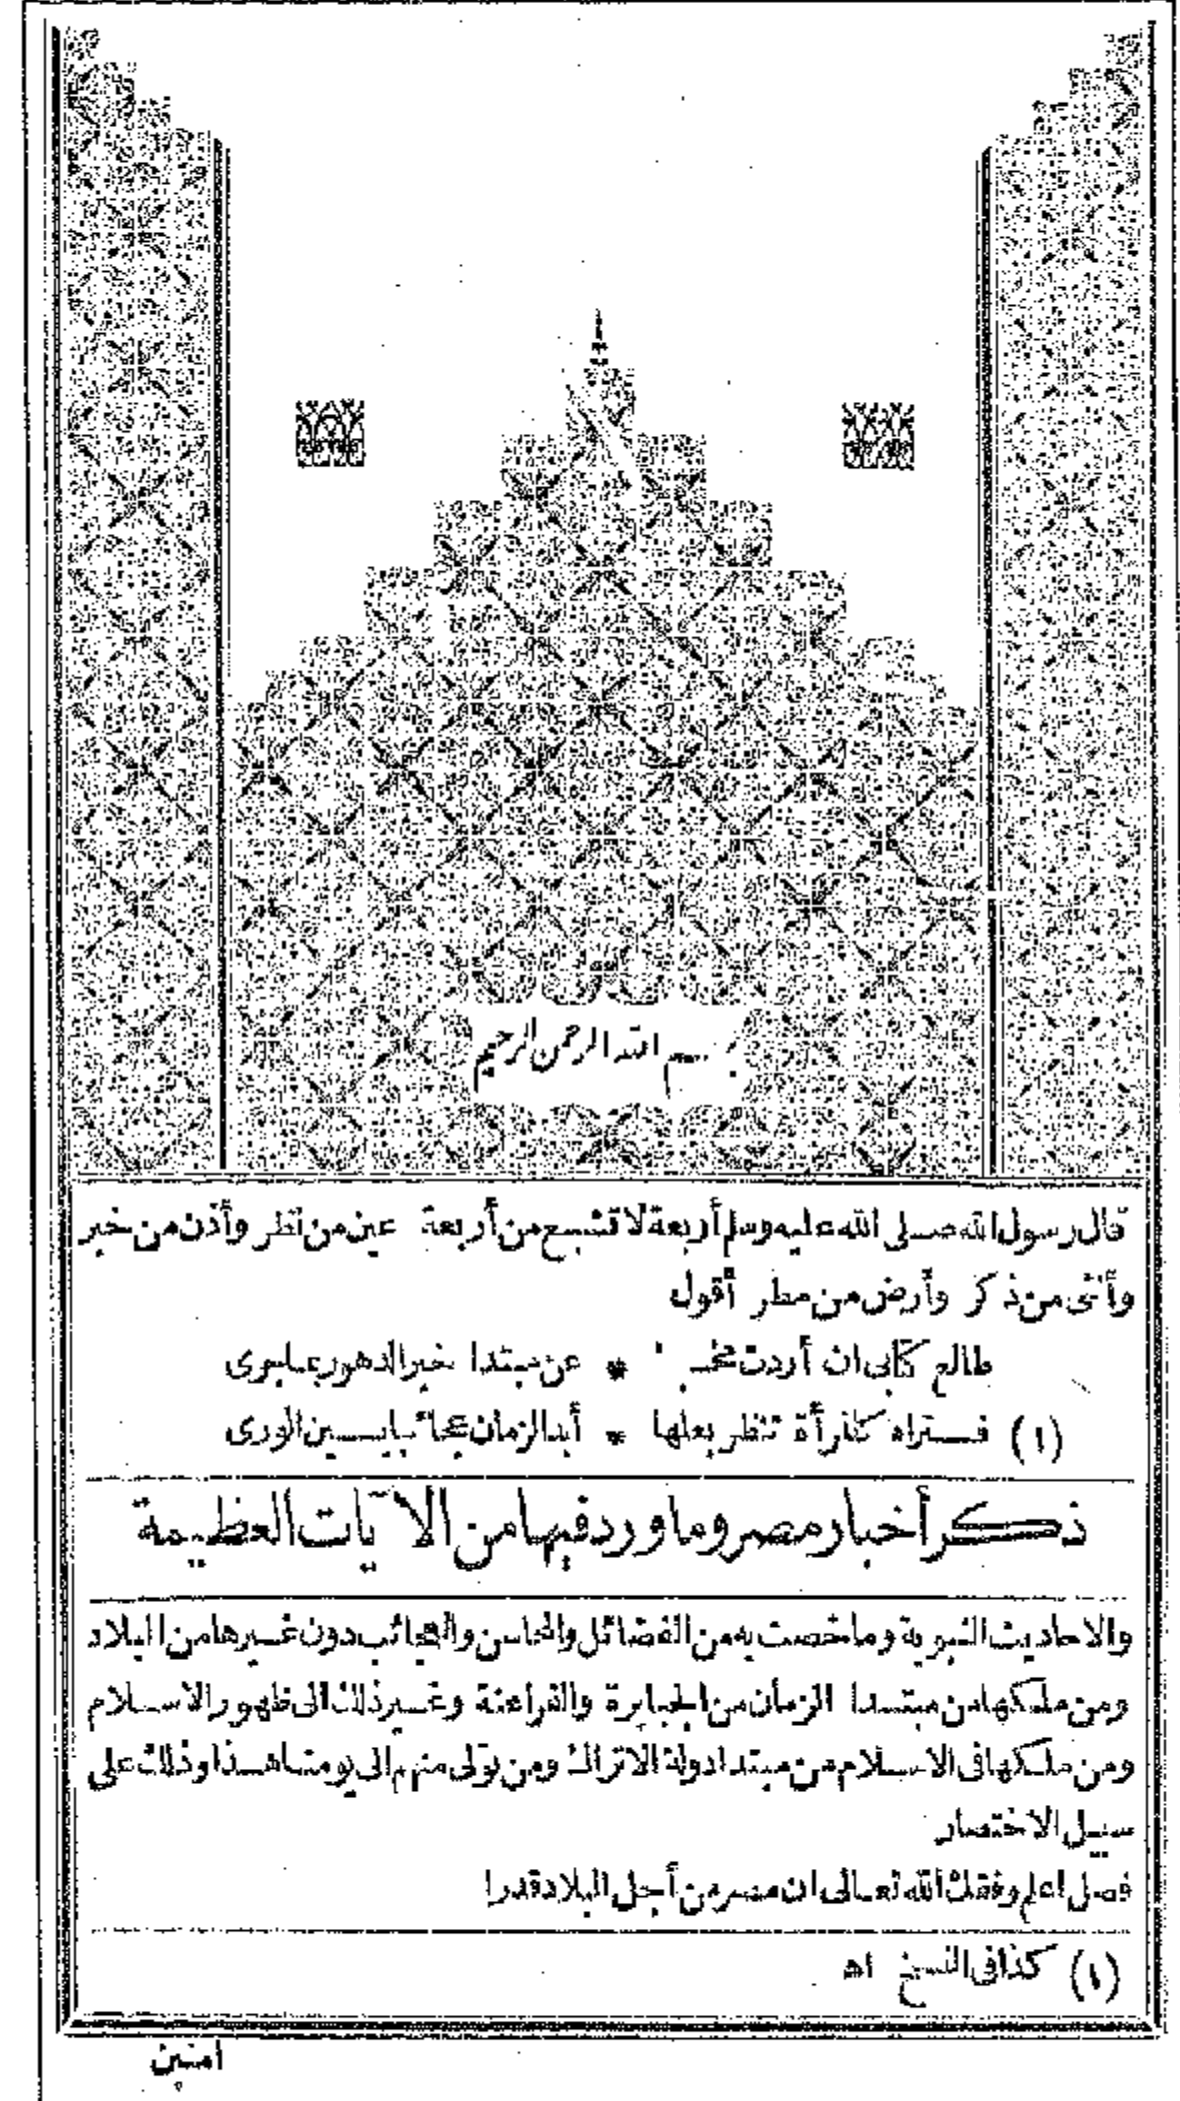 بسم الله الرحمن الرحيم
قال رسول الله صلى الله عليه وسلم أربعة لا تشبع من أربعة عين من نظر وأذن من خبر
وأنثى من ذكر وأرض من مطر أقول
طالع كتابى ان أردت * عن مبتدا خبر الدهور بما جرى
(١) فستراه كالمرأة تنظر بعلها * أبد الزمان عجائبا بين الورى
ذكر أخبار مصر وما ورد فيها من الآيات العظيمة
والاحاديث النبوية وما خصت به من الفضائل والمحاسن والعجائب دون غيرها من البلاد
ومن ملكها من مبتدا الزمان من الجبابرة والفراعنة وغير ذلك الى ظهور الاسلام
ومن ملكها فى الاسلام من مبتدا دولة الاتراك ومن تولى منهم الى يومنا هذا وذلك على
سبيل الاختصار
فصل اعلم وفقك الله تعالى ان مصر من أجل البلاد قدرا
(١) كذا فى النسخ اه